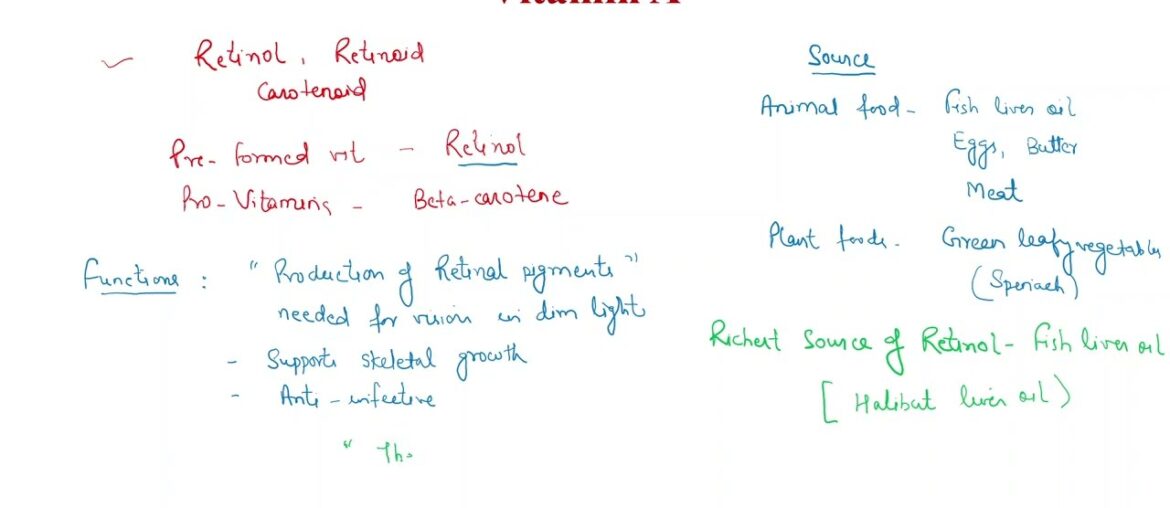 Vitamin A
Retinol, Retinoid
Carotenoid
Pre-formed vit - Retinol
Pro-Vitamins - Beta-carotene
Functions : " Production of Retinal pigments "
needed for vision in dim light
- Supports skeletal growth
- Anti-infective
" Th.
Source
Animal food - Fish liver oil
Eggs, Butter
Meat
Plant foods - Green leafy vegetables
(Speniach)
Richest Source of Retinol - Fish liver oil
[ Halibut liver oil )